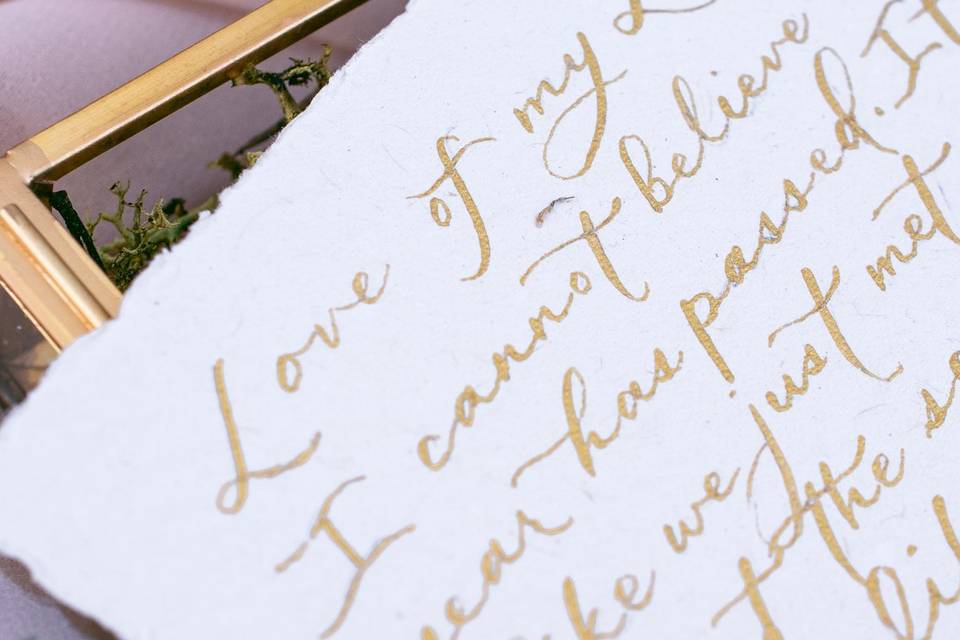 Love of my
I cannot believe
ear has passed. It
ke we just met
the